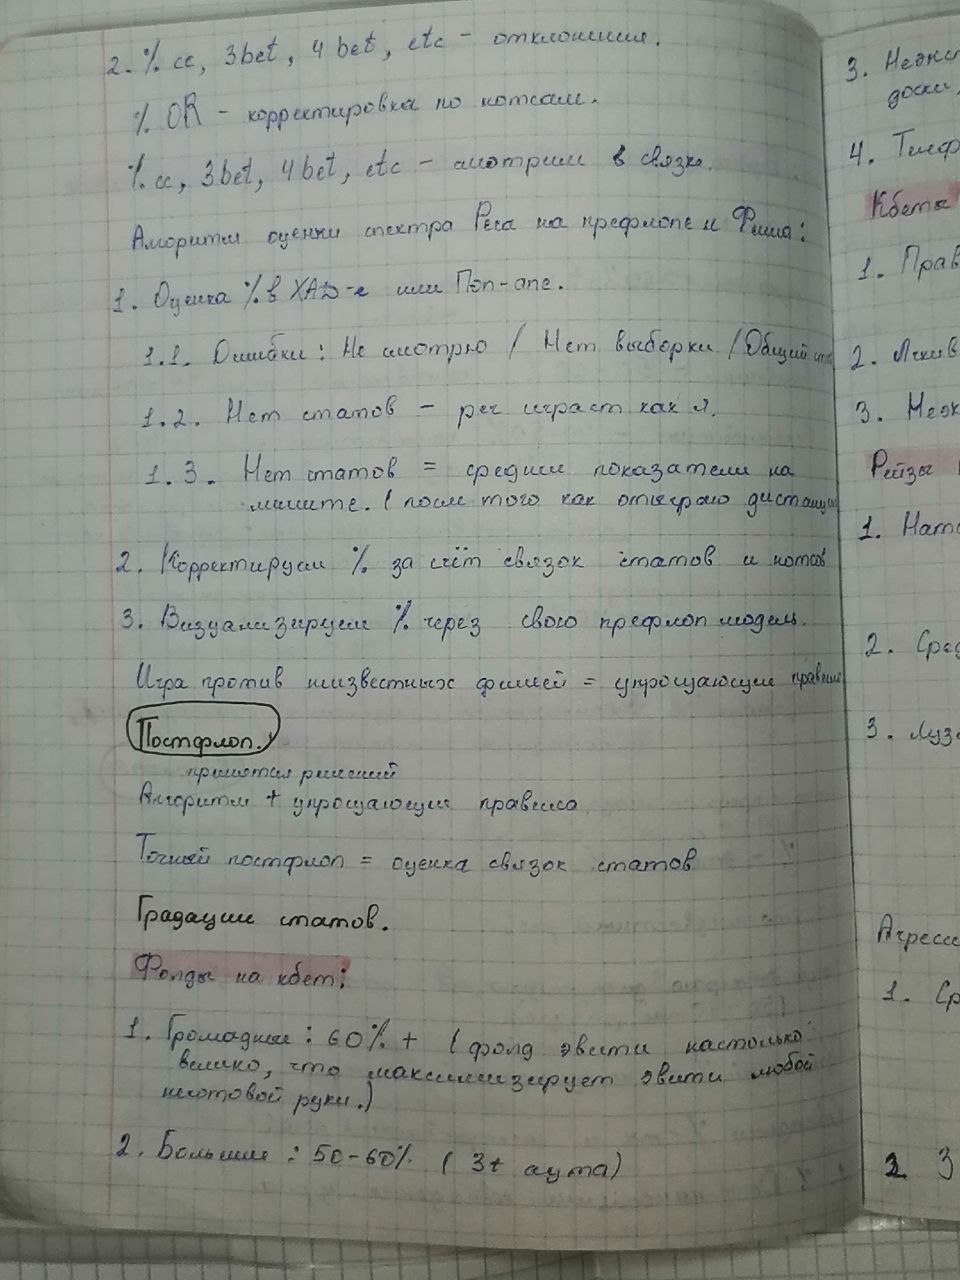 2. % cc, 3bet, 4bet, etc - отклонения.
% OR - корректировка по нотсам.
% cc, 3bet, 4bet, etc - смотрим в связке.
Алгоритм оценки спектра Рега на префлопе и Фиша:
1. Оценка % в ХАД-е или Поп-апе.
1.1. Ошибки: Не смотрю / Нет выборки / Общий
1.2. Нет статов - рег играет как я.
1.3. Нет статов = средние показатели на
лимите. (после того как отыграю дистанцию
2. Корректируем % за счёт связок статов и нотсов
3. Визуализируем % через свою префлоп модель.
Игра против неизвестных фишей = упрощающие правила
Постфлоп.
принятия решений
Алгоритм + упрощающие правила
Точный постфлоп = оценка связок статов
Градации статов.
Фолды на кбет:
1. Громадные: 60% + (фолд эквити настолько
велико, что максимизирует эквити любой
неготовой руки.)
2. Большие: 50-60% (3+ аута)
3.
доски,
4.
Кбеты
1. Прав
2.
3.
Рейзы
1. Нат
2. Сред
3. Луз
Агресс
1. Ср
2 3